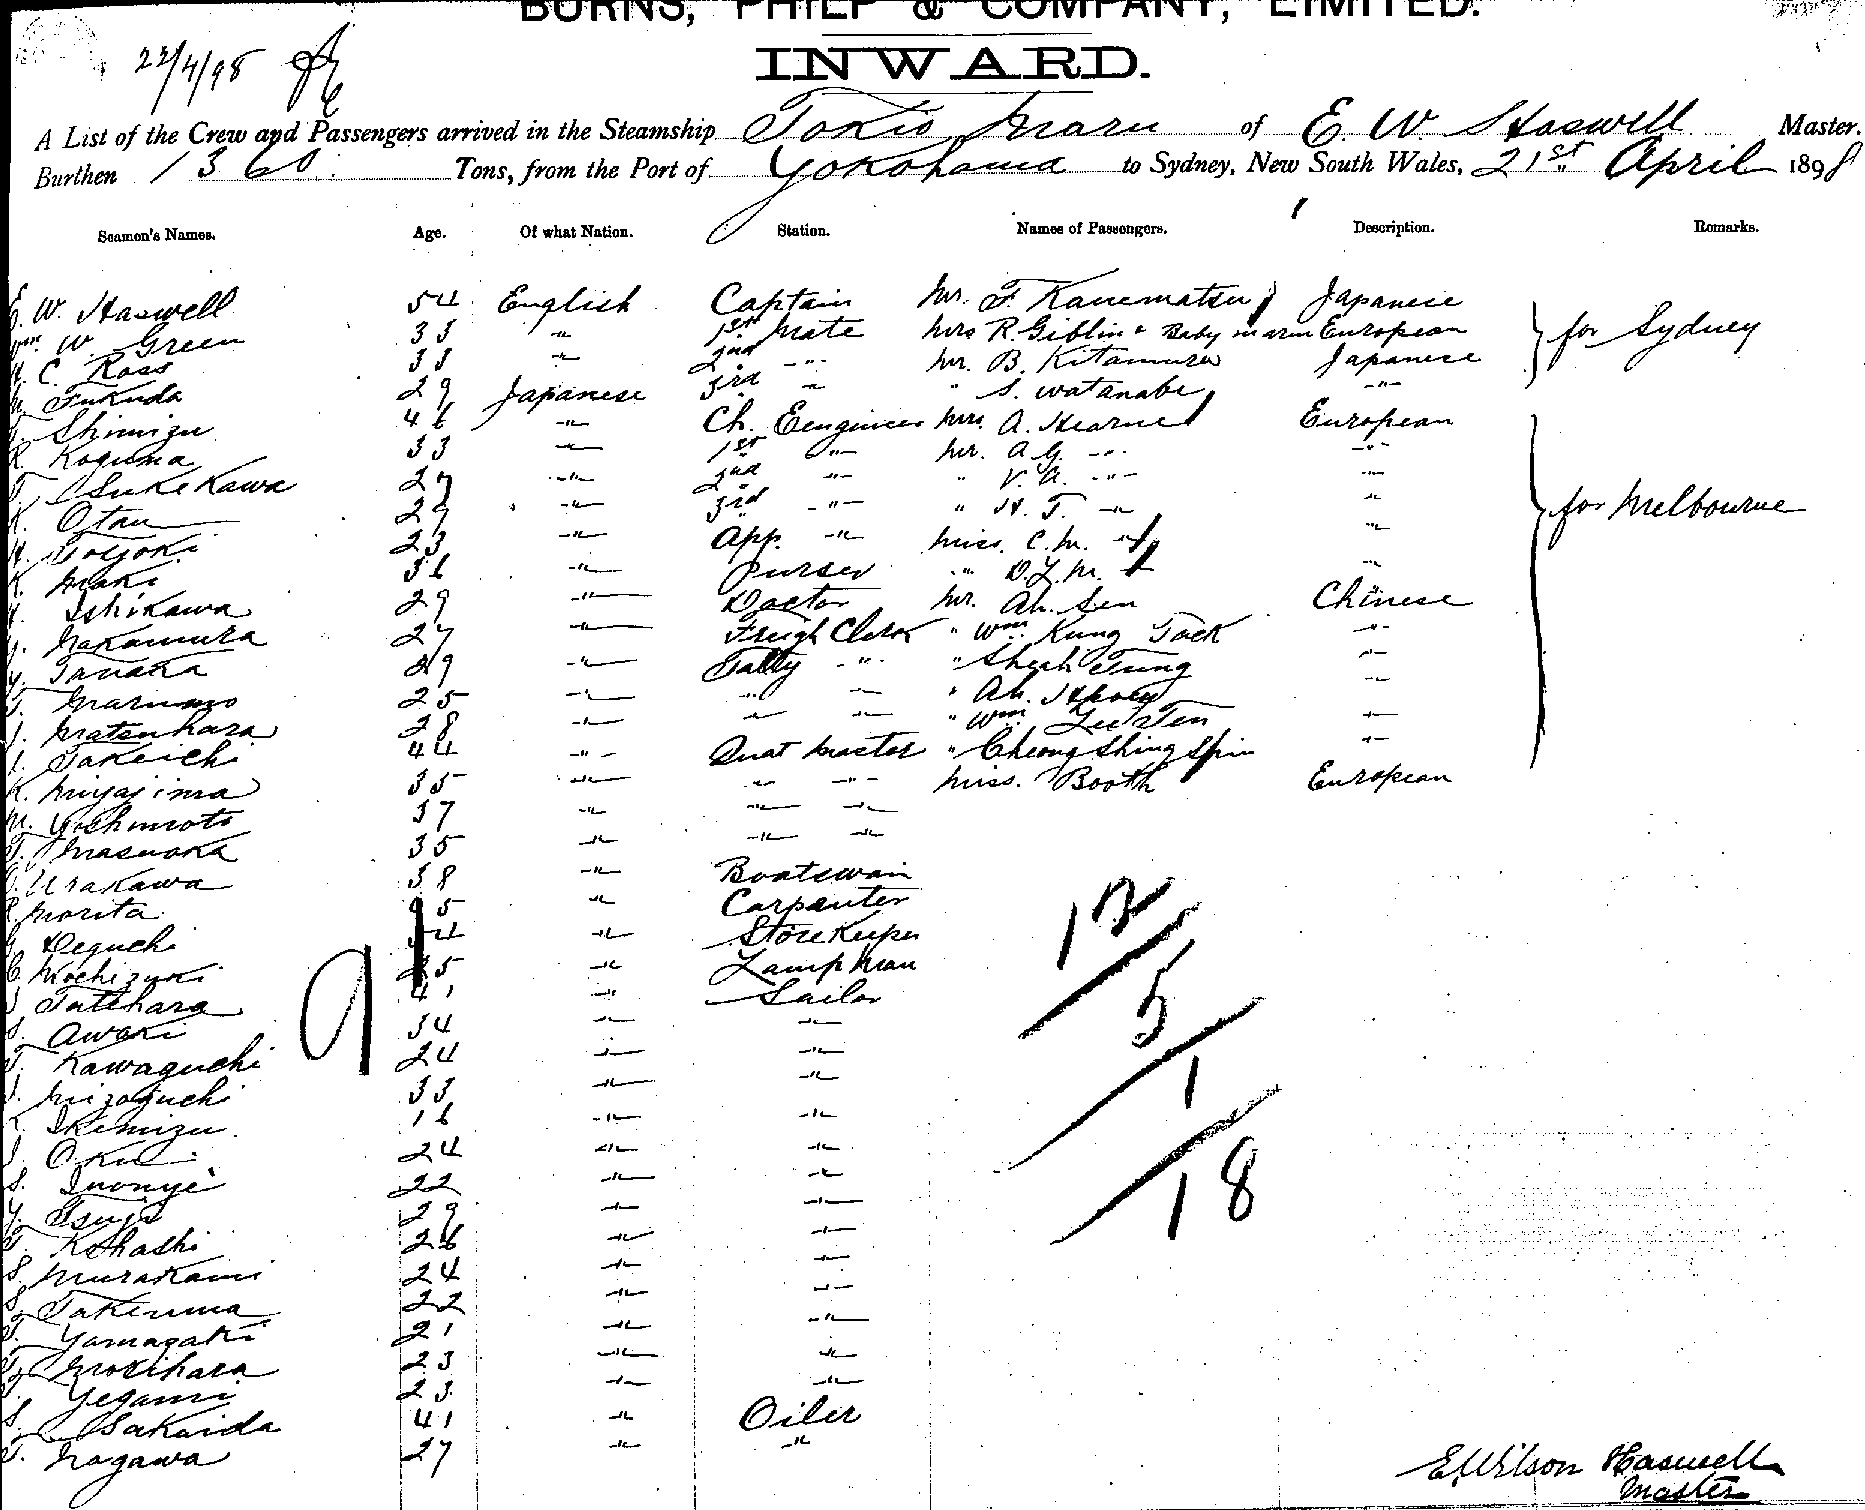 BURNS, PHILP & COMPANY, LIMITED.
22/4/98
INWARD.
A List of the Crew and Passengers arrived in the Steamship Tokio Maru of E. W. Haswell Master.
Burthen 1360 Tons, from the Port of Yokohama to Sydney, New South Wales, 21st April 1898
Seamen's Names. Age. Of what Nation. Station. Names of Passengers. Description. Remarks.
E. W. Haswell 54 English Captain Mr. F. Kanematsu Japanese
Wm. W. Green 33 " 1st Mate Mrs R. Giblin & Baby in arm European for Sydney
C. Ross 33 " 2nd " Mr. B. Kitamura Japanese
Fukuda 29 Japanese 3rd " " S. Watanabe "
Shimizu 46 " Ch. Eengineer Mrs. A. Hearne European
K. Koguma 33 " 1st " Mr. A. G. " "
T. Sukekawa 27 " 2nd " " V. A. " "
K. Otau 29 " 3rd " " H. T. " " for Melbourne
Toyoki 23 " App. " Miss. C. M. " "
K. Maki 36 " Purser " D. L. M. "
Ishikawa 29 " Doctor Mr. Ah. Sen Chinese
Nakamura 27 " Freigh Clerk " Wm. Kung Tack "
Y. Tanaka 29 " Tally " " Sheah Tung "
T. Marumo 25 " " " " Ah. "
Matsuhara 28 " " " " Wm. Lee Ten "
Takeichi 44 " Quat Master " Cheong Shing Spin "
K. Miyajima 35 " " " Miss. Booth European
M. Yoshimoto 37 " " "
T. Masuoka 35 " " "
Urakawa 38 " Boatswain
Morita 5 " Carpenter
Deguchi 4 " Store Keeper
Mochizuki 5 " Lamp Man
Tatehara 41 " Sailor
S. Awaki 34 " "
T. Kawaguchi 24 " "
Mizoguchi 33 " "
Ikemizu 16 " "
Oku 24 " "
S. Inouye 22 " "
Y. Tsuji 29 " "
T. Kohashi 26 " "
S. Murakami 24 " "
S. Takenma 22 " "
T. Yamazaki 21 " "
T. Mokihara 23 " "
Yegami 23 " "
S. Sakaida 41 " Oiler
T. Nagawa 27 " "
9
12
5
1
18
E. Wilson Haswell
Master